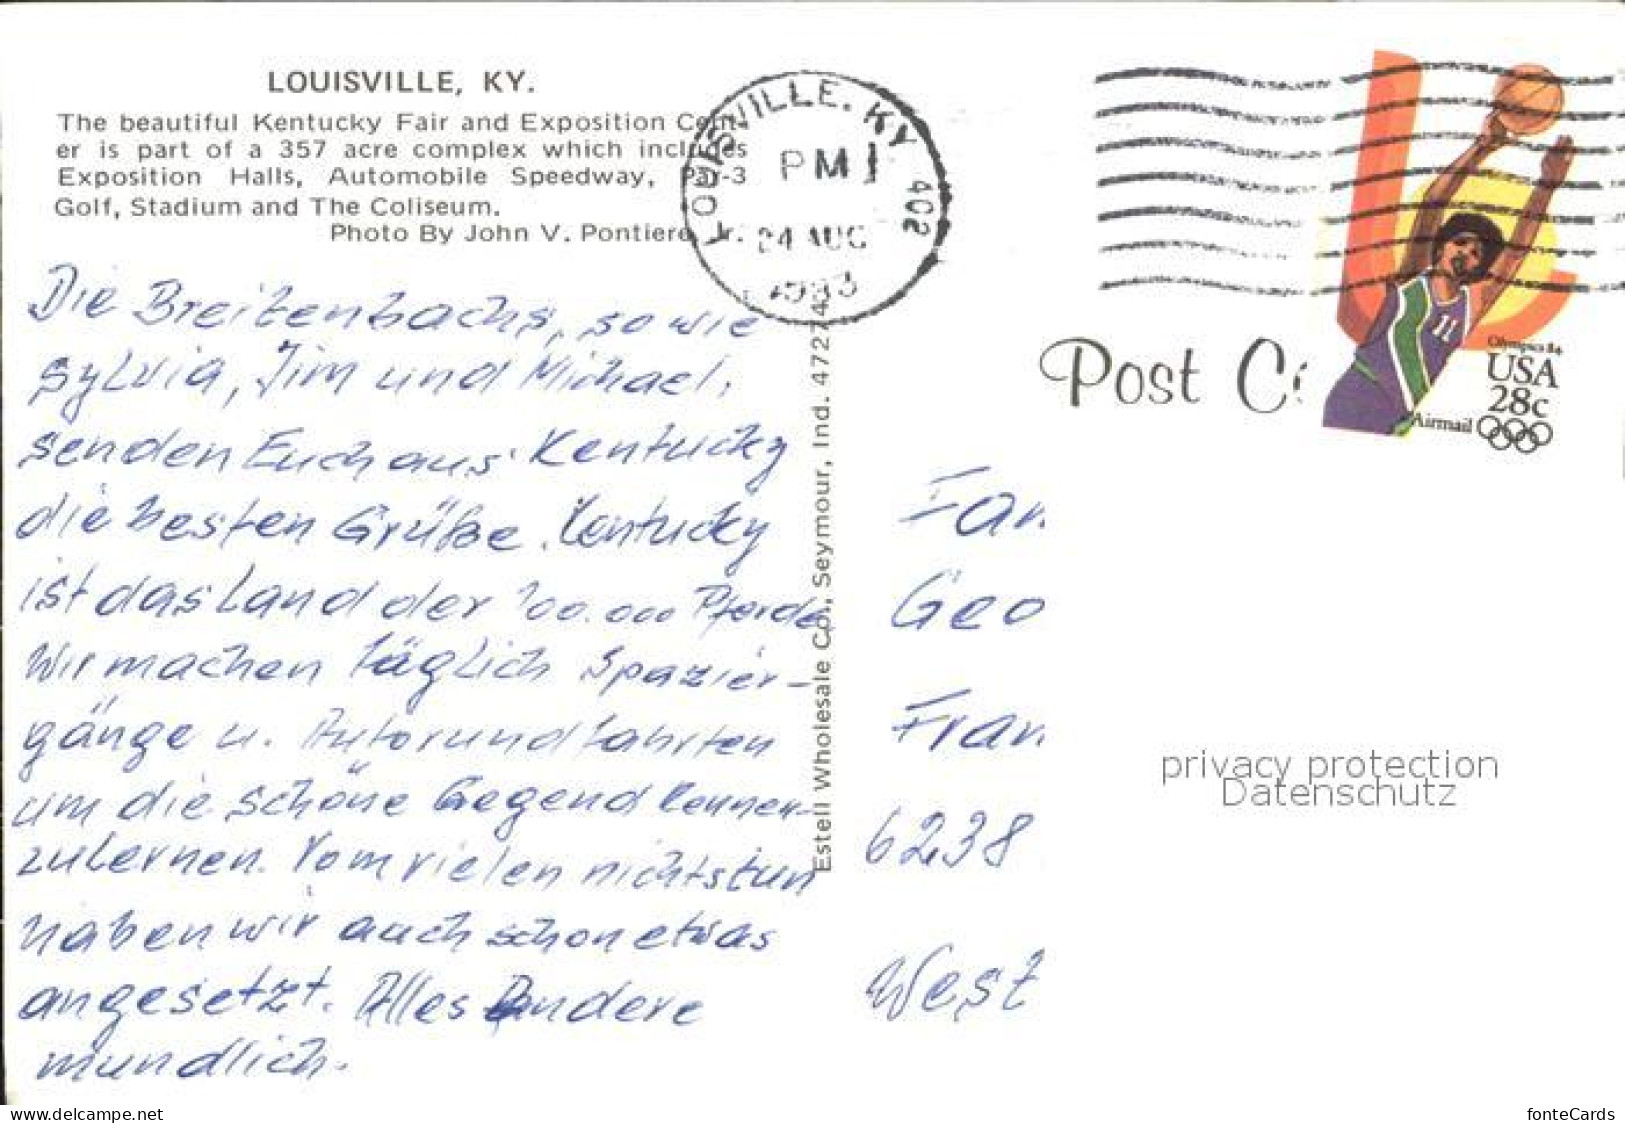 LOUISVILLE, KY.
The beautiful Kentucky Fair and Exposition Cent-
er is part of a 357 acre complex which includes
Exposition Halls, Automobile Speedway, Par-3
Golf, Stadium and The Coliseum.
Photo By John V. Pontiero, Jr.
LOUISVILLE, KY 402
PM
24 AUG
1983
Olympics 84
USA
28c
Airmail
Post C
Estell Wholesale Co., Seymour, Ind. 47274
Die Breitenbachs, sowie
Sylvia, Jim und Michael,
senden Euch aus Kentucky
die besten Grüße. Kentucky
ist das Land der 100.000 Pferde
Wir machen täglich Spazier-
gänge u. Autorundfahrten
um die schöne Gegend kennen-
zulernen. Vom vielen nichtstun
haben wir auch schon etwas
angesetzt. Alles Andere
mundlich.
Fam
Geo
Fran
6238
West
privacy protection
Datenschutz
www.delcampe.net
fonteCards